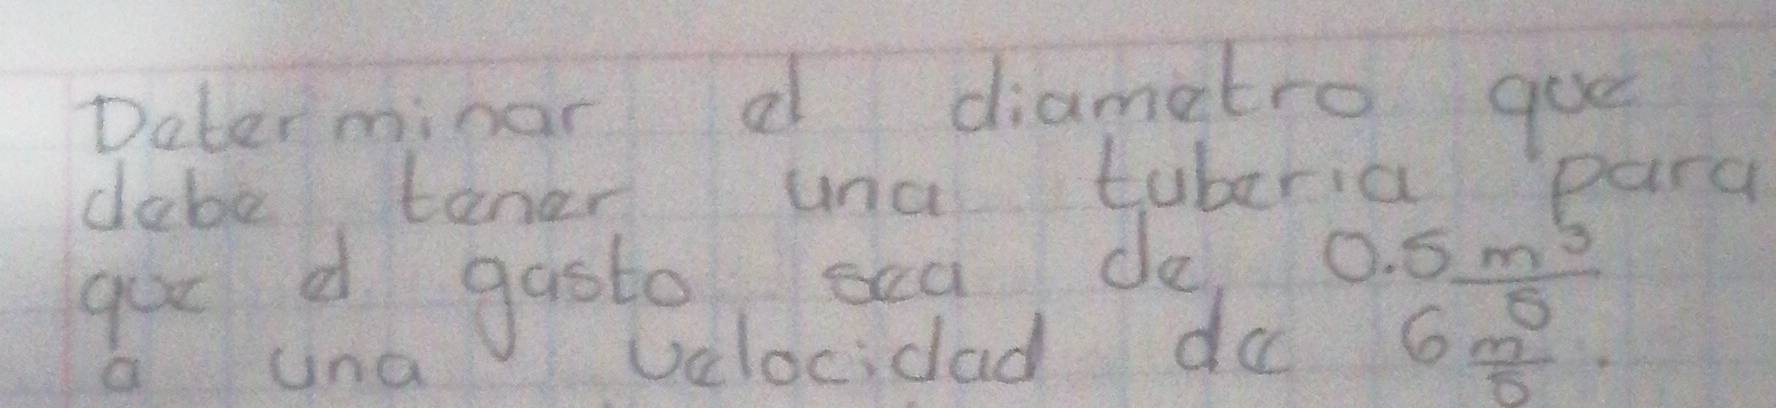 Determinar el diametro que
debe tener una tuberia para
que el gasto sea de 0.5 m³/s
a una velocidad de 6 m/s.